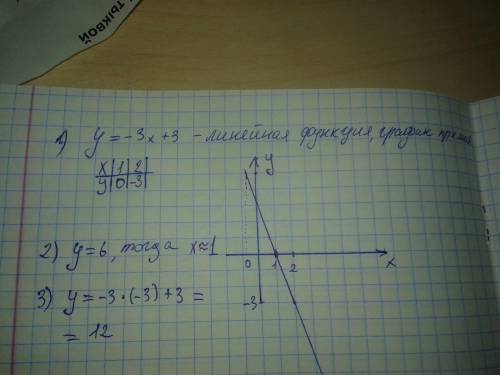 ТЫКВОЙ
1) y = -3x +3 - линейная функция, график прямая
x | 1 | 2 |
y | 0 | -3 |
y
2) y=6, тогда x≈1
0 1 2 x
3) y = -3·(-3)+3 =
-3
= 12